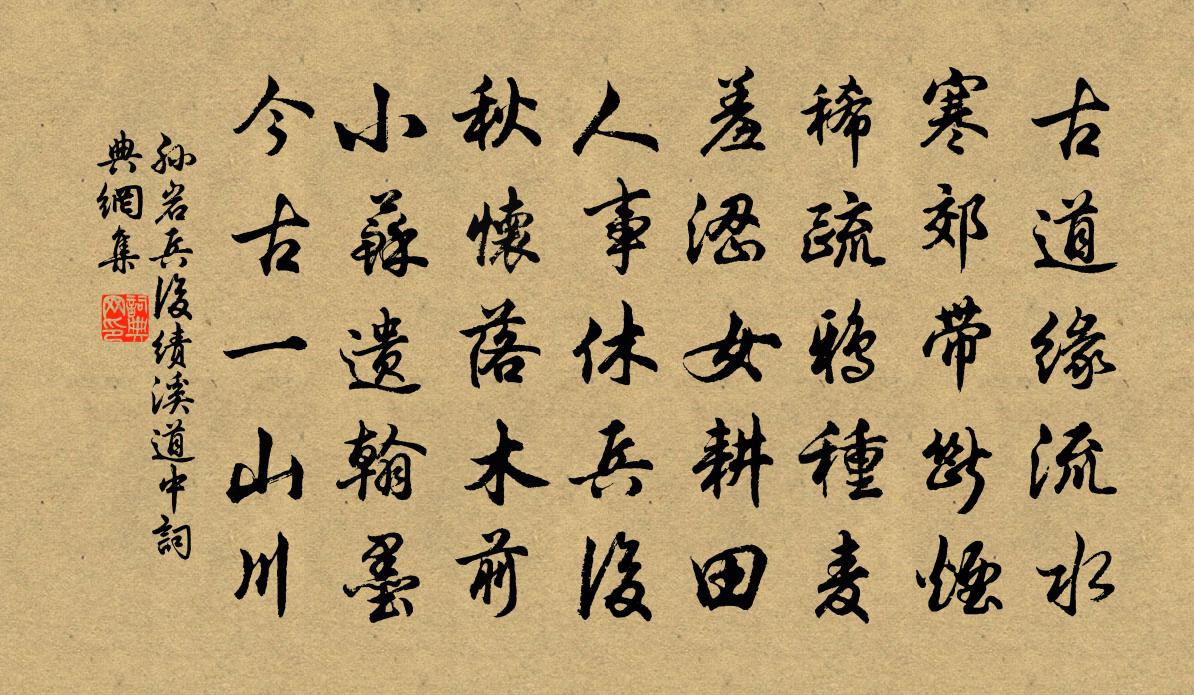 古道緣流水
寒郊帶斷煙
稀疏鴉種麦
羞澀女耕田
人事休兵後
秋懷落木前
小蘇遺翰墨
今古一山川
孙岩兵後績溪道中詞
典網集
詞典
网印